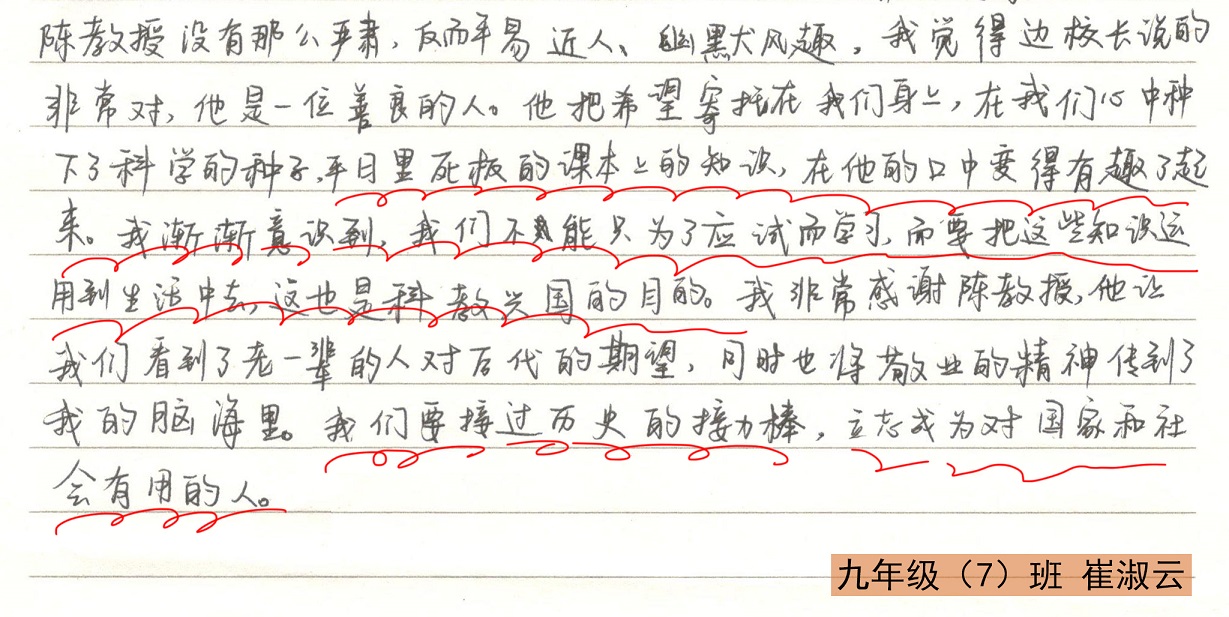 陈教授没有那么严肃，反而平易近人、幽默风趣。我觉得边校长说的
非常对，他是一位善良的人。他把希望寄托在我们身上，在我们心中种
下了科学的种子，平日里死板的课本上的知识，在他的口中变得有趣了起
来。我渐渐意识到，我们不能只为了应试而学习，而要把这些知识运
用到生活中去，这也是科教兴国的目的。我非常感谢陈教授，他让
我们看到了老一辈的人对后代的期望，同时也将敬业的精神传到了
我的脑海里。我们要接过历史的接力棒，立志成为对国家和社
会有用的人。
九年级（7）班 崔淑云